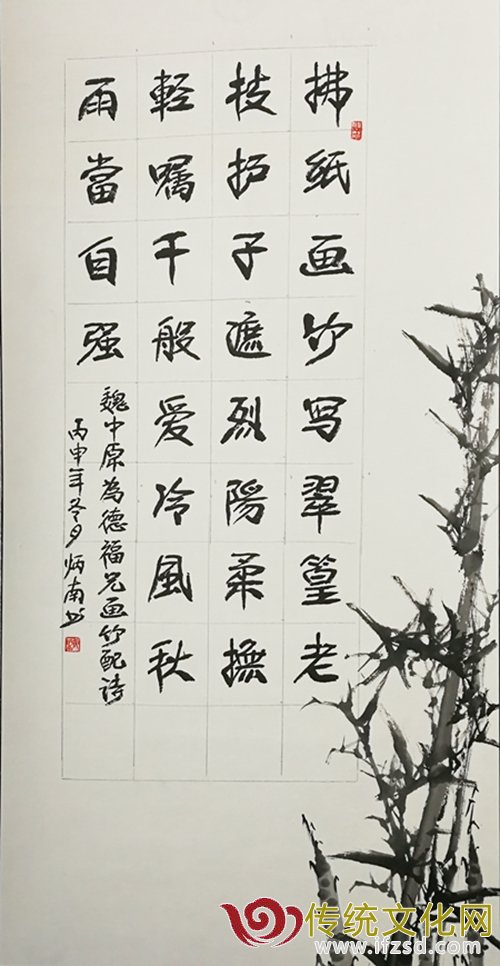 拂纸画竹写翠篁老
技护子遮烈陽柔撫
輕嘱千般爱冷風秋
雨當自强
魏中原為德福兄画竹配诗
丙申年冬月炳南书
传统文化网
www.ifzsd.com